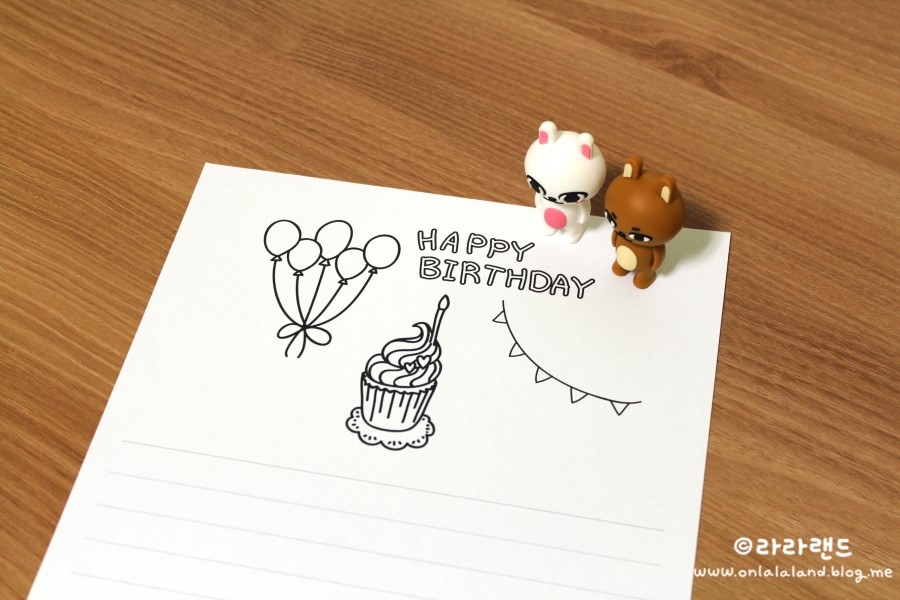 HAPPY
BIRTHDAY
©라라랜드
www.onlalaland.blog.me